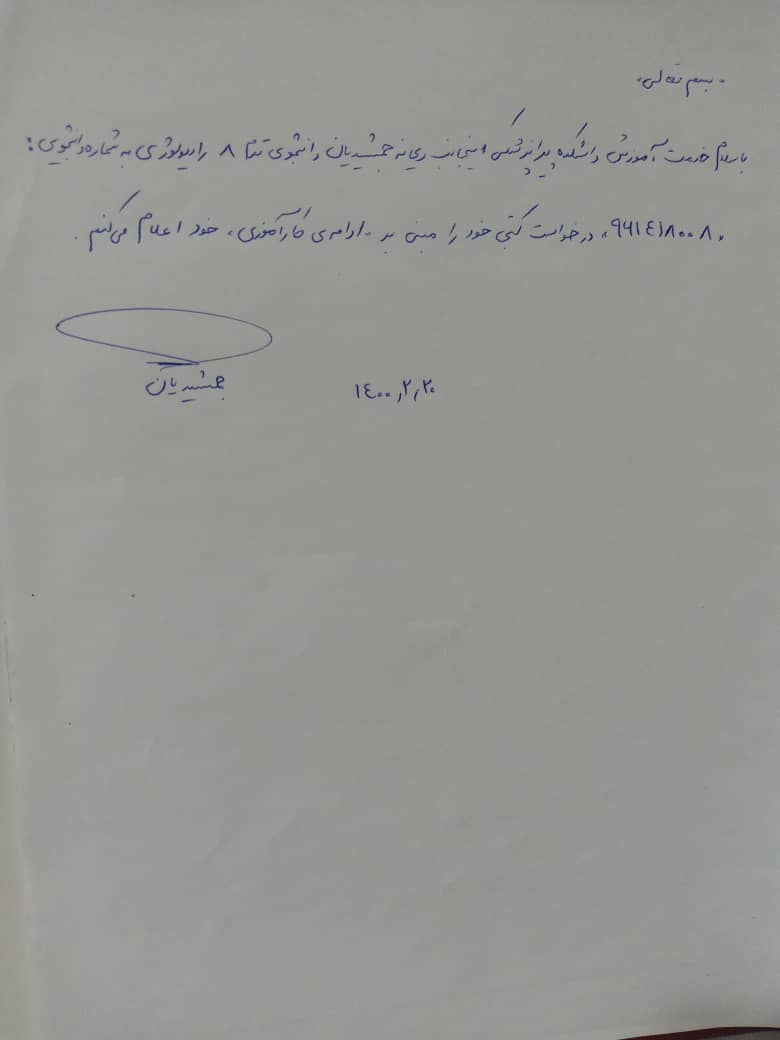 « بسم تعالی »
با سلام خدمت آموزش دانشکده پیراپزشکی اینجانب ریحانه جمشیدیان دانشجوی ترم ۸ رادیولوژی به شماره دانشجویی:
«۹۶۱٤۱۸۰۰۸۰» درخواست کتبی خود را مبنی بر «ادامه‌ی کارآموزی» خود اعلام می‌کنم.
جمشیدیان
۱٤۰۰٫۲٫۲۰